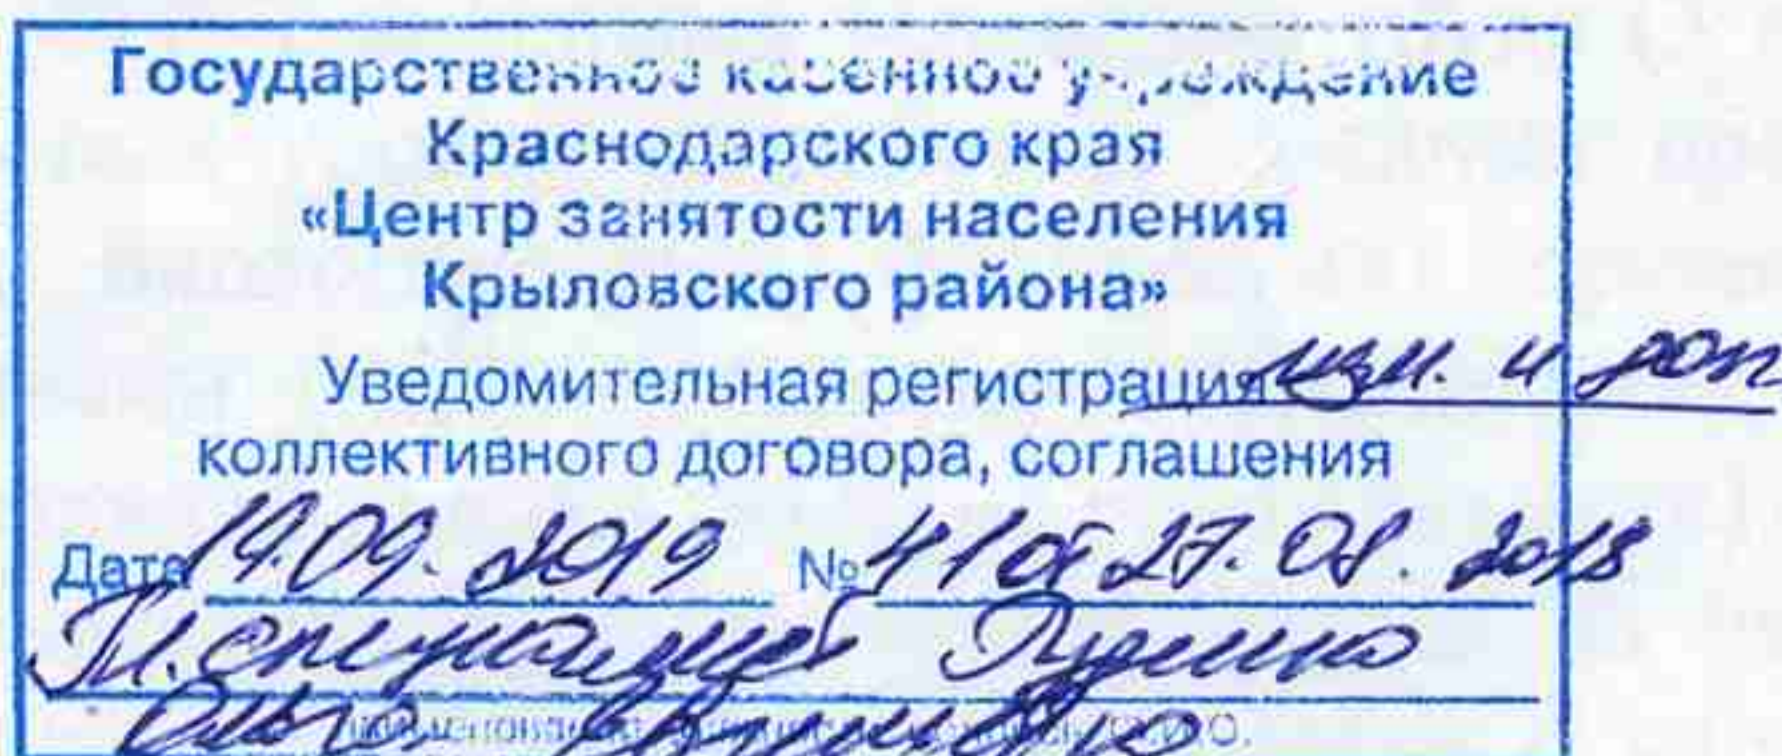 Государственное казенное учреждение
Краснодарского края
«Центр занятости населения
Крыловского района»
Уведомительная регистрация изм. и доп
коллективного договора, соглашения
Дата 19.09.2019 № 41 от 27.08.2018
Гл. специалист
Ольга